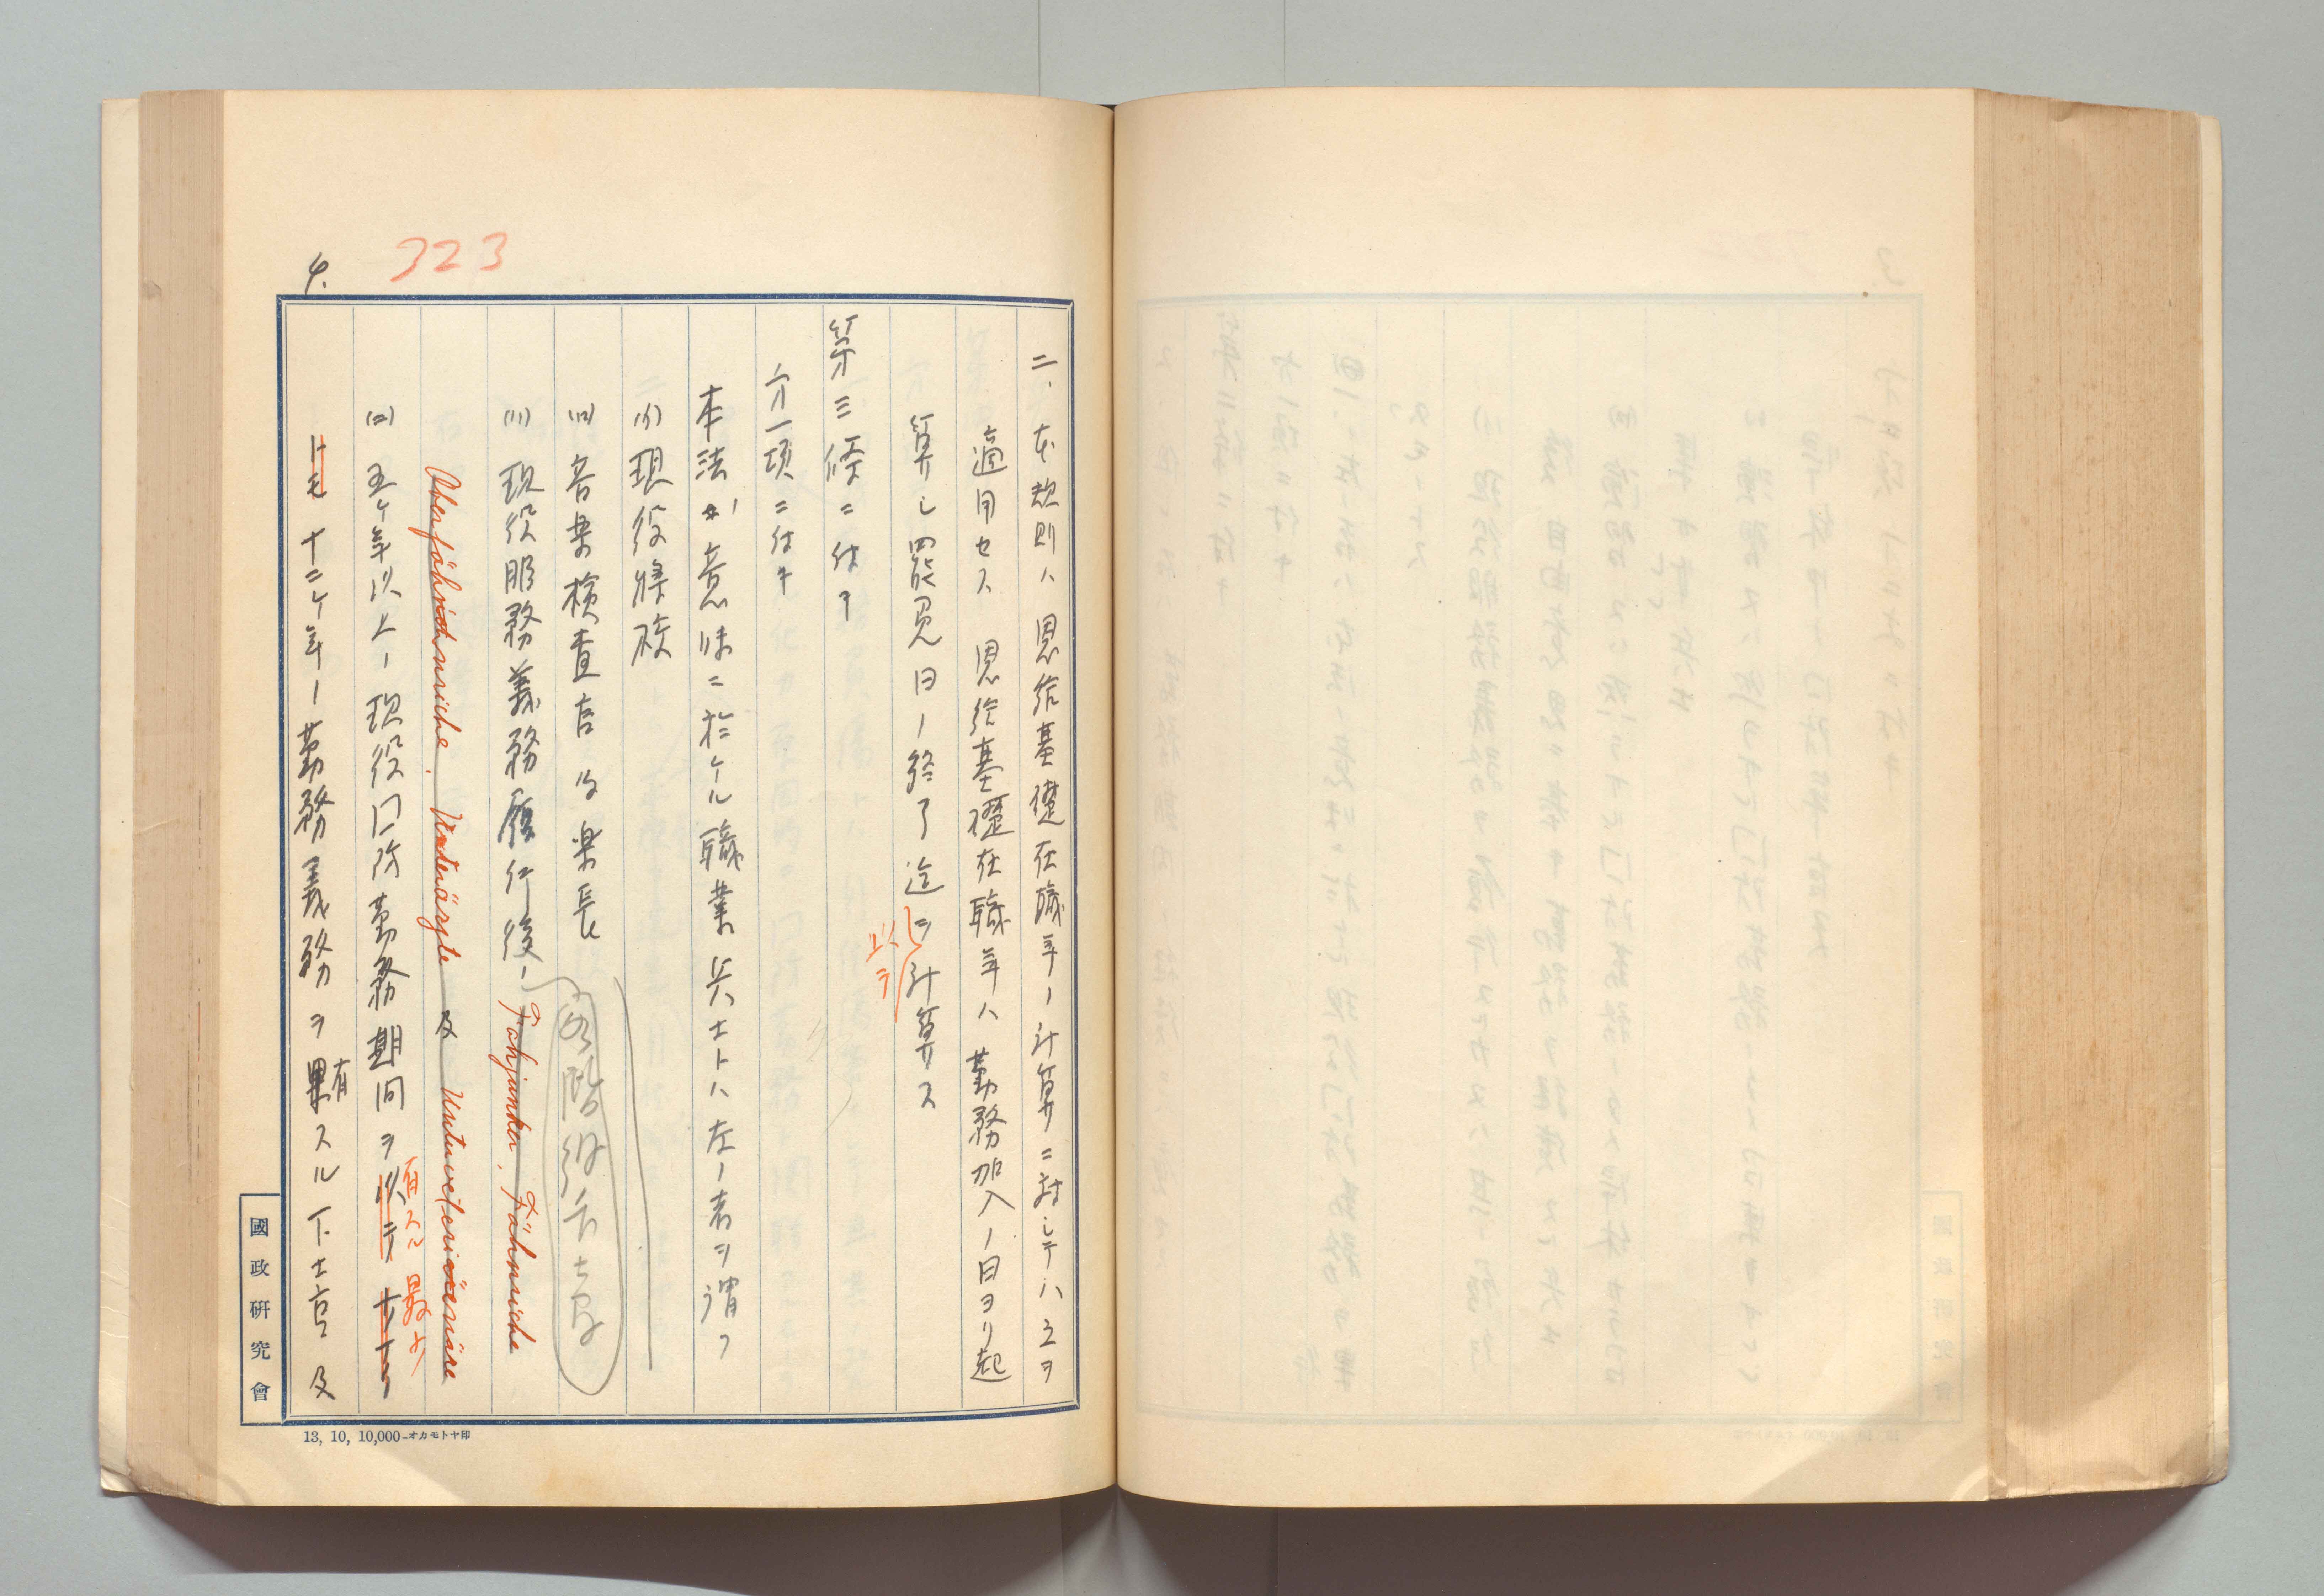 4.
323
二、本規則ハ恩給基礎在職年ノ計算ニ対シテハ之ヲ
適用セス 恩給基礎在職年ハ勤務加入ノ日ヨリ起
算シ罷免日ノ終了迄ヲ計算ス
以ヲ
第三條ニ付テ
第一項ニ付キ
本法ノ意味ニ於ケル職業兵士トハ左ノ者ヲ謂フ
(イ) 現役將校
(ロ) 音楽検査官及楽長
(ハ) 現役服務義務履行後ノ Fahjunker, Fähnriche
各階級兵士及
Oberfähnriche, Unterärzte 及 Unterveterinäre
(ニ) 五ヶ年以上ノ現役内防勤務期間ヲ以テ
有スル 最少
十二ヶ年ノ勤務義務ヲ果スル下士官及
有
國政研究會
13, 10, 10,000-オカモトヤ印